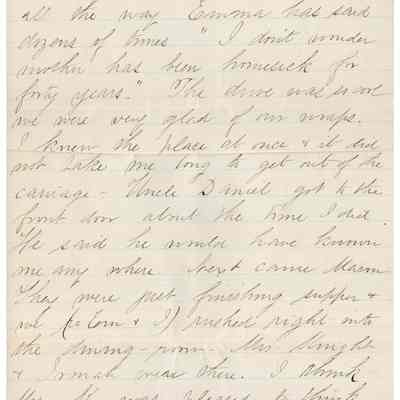 all the way Emma has said
dozens of times "I don't wonder
mother has been homesick for
forty years." The drive was so cool
we were very glad of our wraps.
I knew the place at once & it did
not take me long to get out of the
carriage - Uncle Daniel got to the
front door about the time I did.
He said he would have known
me any where Next came
They were just finishing supper &
we (to Tom & I) rushed right into
the dining-room. Mrs Wright
& Irmah were there. I think
Mrs was pleased to think